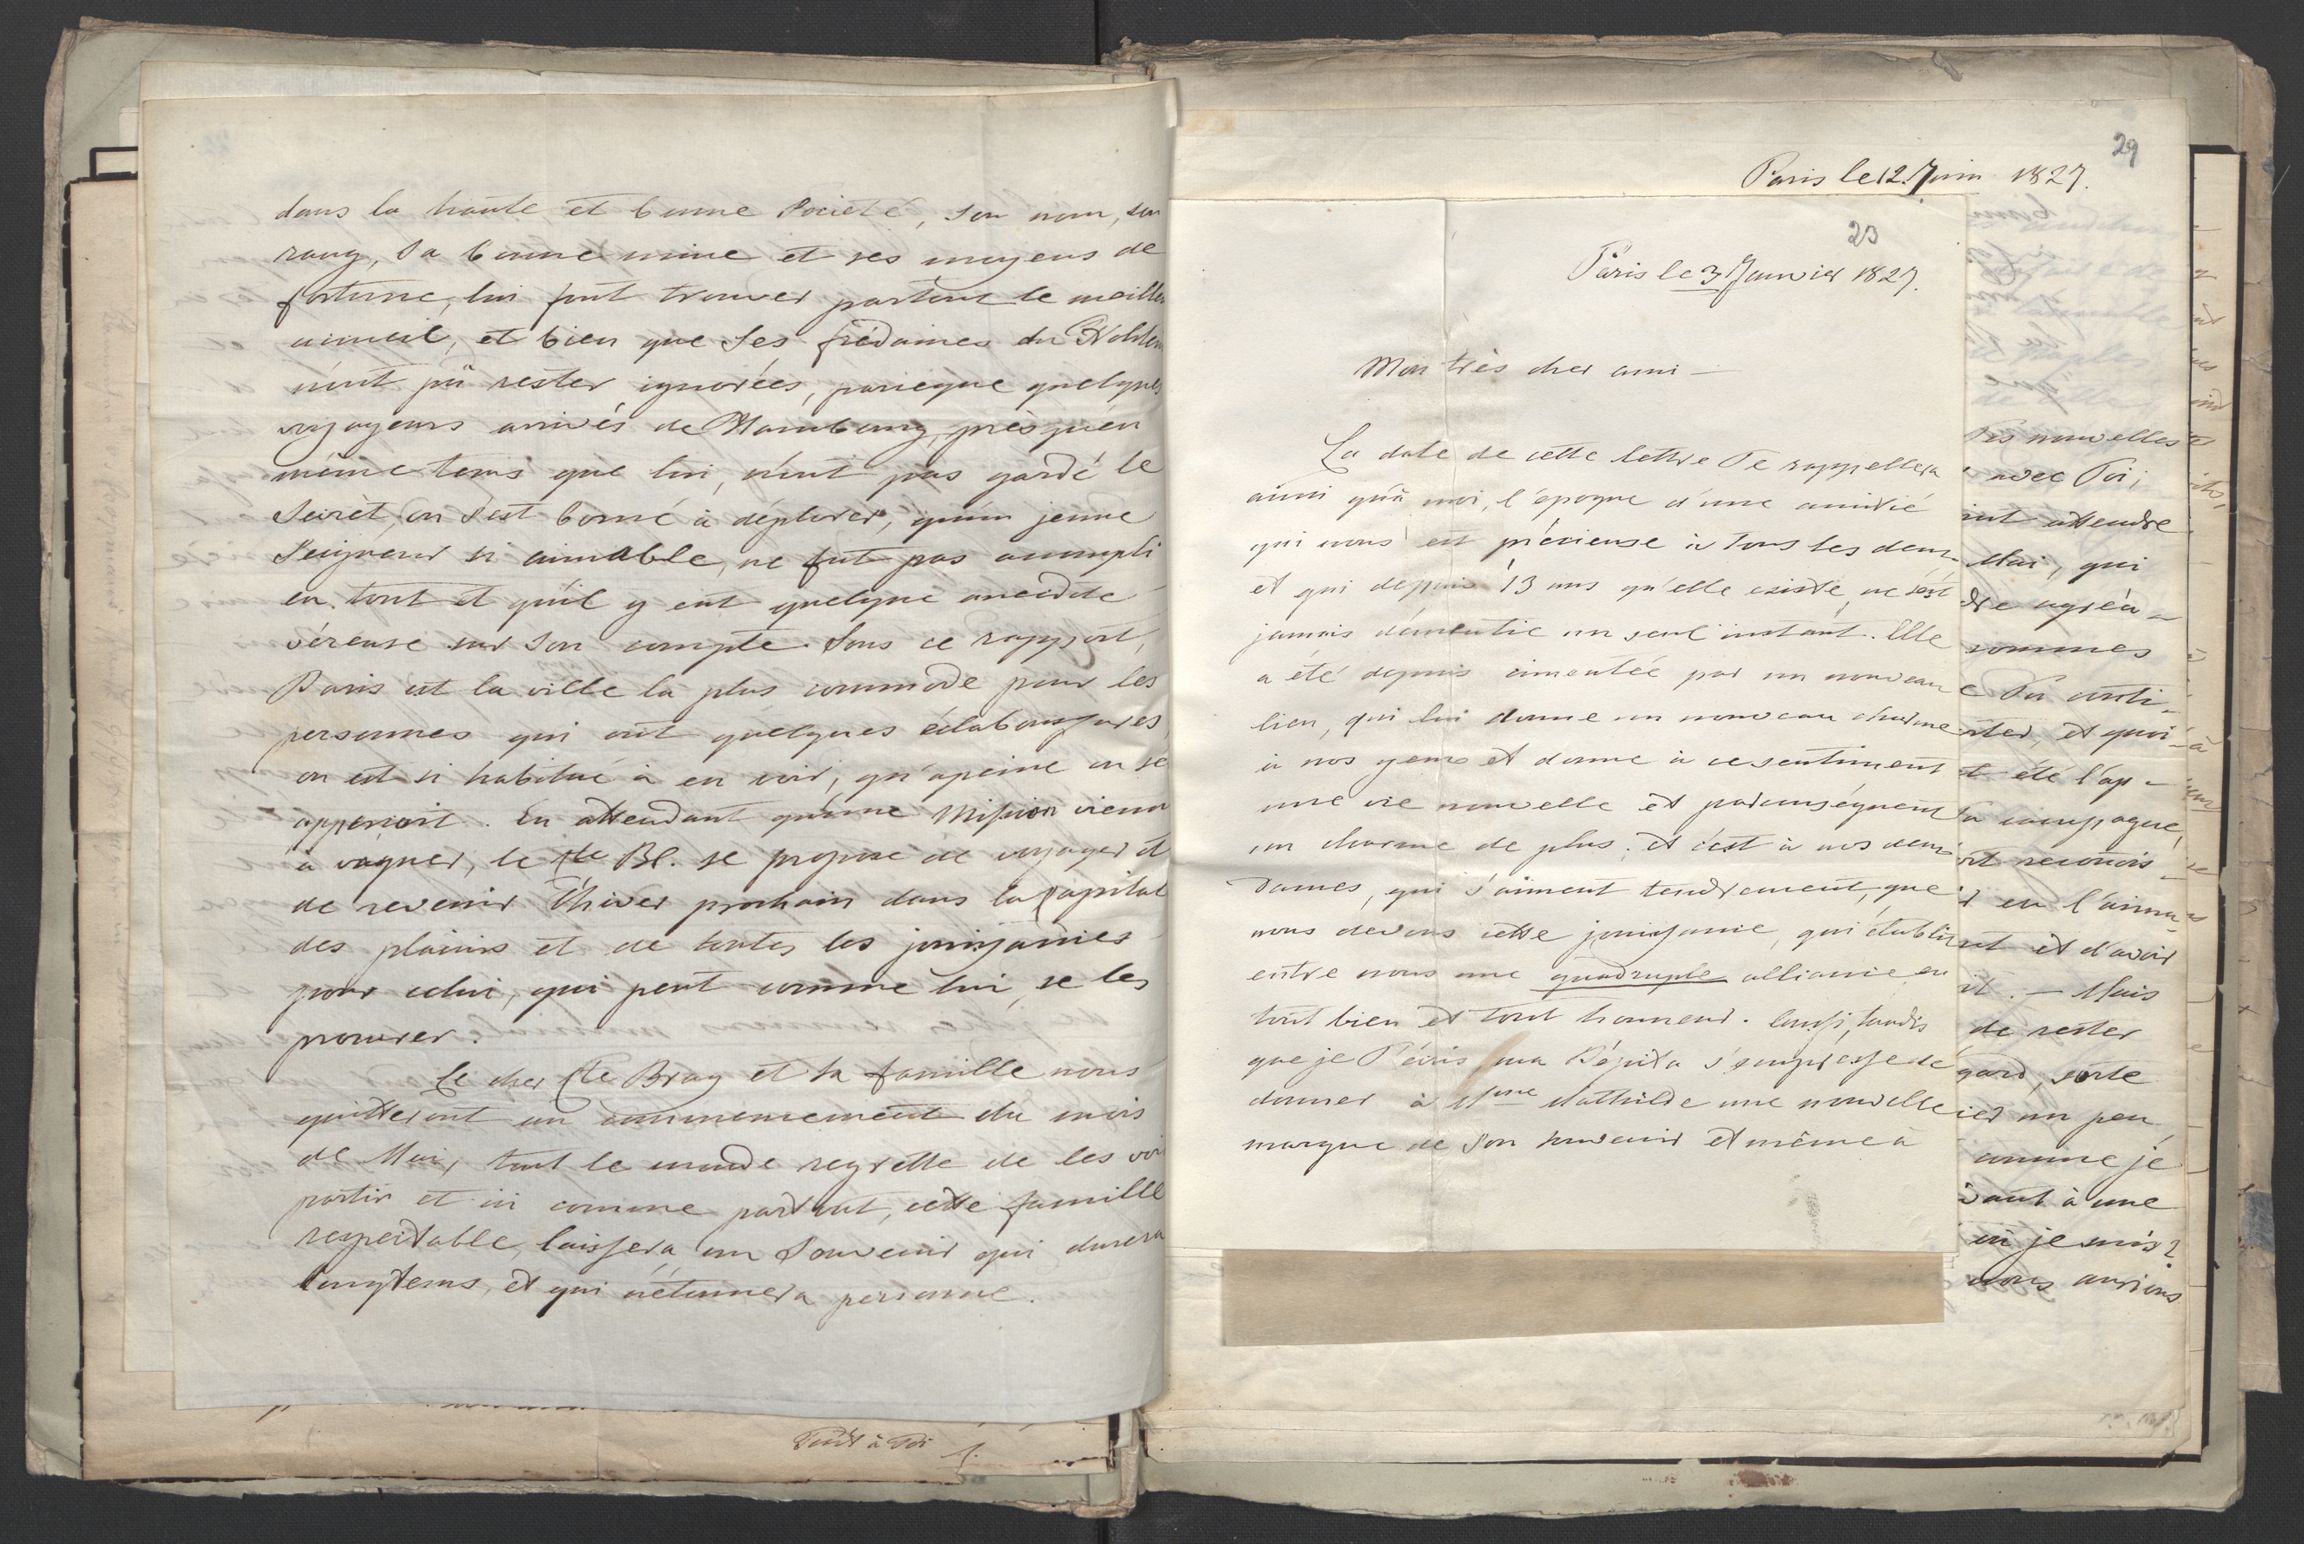 dans la haute et bonne Société, son nom, son
rang, Sa bonne mine et ses moyens de
fortune, lui font trouver partout le meilleu
accueil, et bien que Ses frédaines du Holstein
n'ont pû rester ignorées, parceque quelques
voyageurs arrivés de Hambourg, présqu'en
même tems que lui, n'ont pas gardé le
Sécrèt, on s'est borné à déplorer, qu'un jeune
Seigneur si aimable, ne fut pas accompli
en tout et qu'il y eut quelque anecdote
véreuse sur Son compte. Sous ce rapport,
Paris est la ville la plus commode pour les
personnes qui ont quelques éclaboussures,
on est si habitué à en voir, qu'apeine on s'e
apperçoit. En attendant qu'une Mission vienn
à vaquer, le Cte Bl. se propose de voyager et
de revenir l'hiver prochain dans la Capital
des plaisirs et de toutes les jouissances
pour celui, qui peut comme lui, se les
procurer.
Le cher Cte Bray et sa famille nous
quitteront au commencement du mois
de Mai, tout le monde regrette de les voir
partir et ici comme partout, cette famille
respectable, laissera un Souvenir qui durera
longtems, et qui n'étonnera personne.
Tout à Toi
29
Paris le 12. Juin 1827.
23
Paris le 3 Janvier 1827.
Mon très cher ami —
La date de cette lettre Te rappellera
ainsi qu'à moi, l'époque d'une amitié
qui nous est précieuse à tous les deux
et qui depuis 13 ans qu'elle existe, ne s'est
jamais démentie un seul instant. Elle
a été depuis cimentée par un nouveau
lien, qui lui donne un nouveau charme
à nos yeux et donne à ce sentiment
une vie nouvelle et parconséquent
un charme de plus; et c'est à nos deux
Dames, qui s'aiment tendrement, que
nous devons cette jouissance, qui établit
entre nous une quadruple alliance en
tout bien et tout honneur. Aussi, tandis
que je T'écris, ma Pépita s'empresse de
donner à Mme Mathilde une nouvelle
marque de Son souvenir et même à
Tes nouvelles
avec Toi;
attendre
Mai, qui
agréa-
sommes
Tu
et quoi-
été l'ap-
campagne,
reconnois-
en l'aima-
et d'avoir
. — Mais
de rester
gard, sorte
un peu
comme je
vant à une
ici je suis?
nous aurions